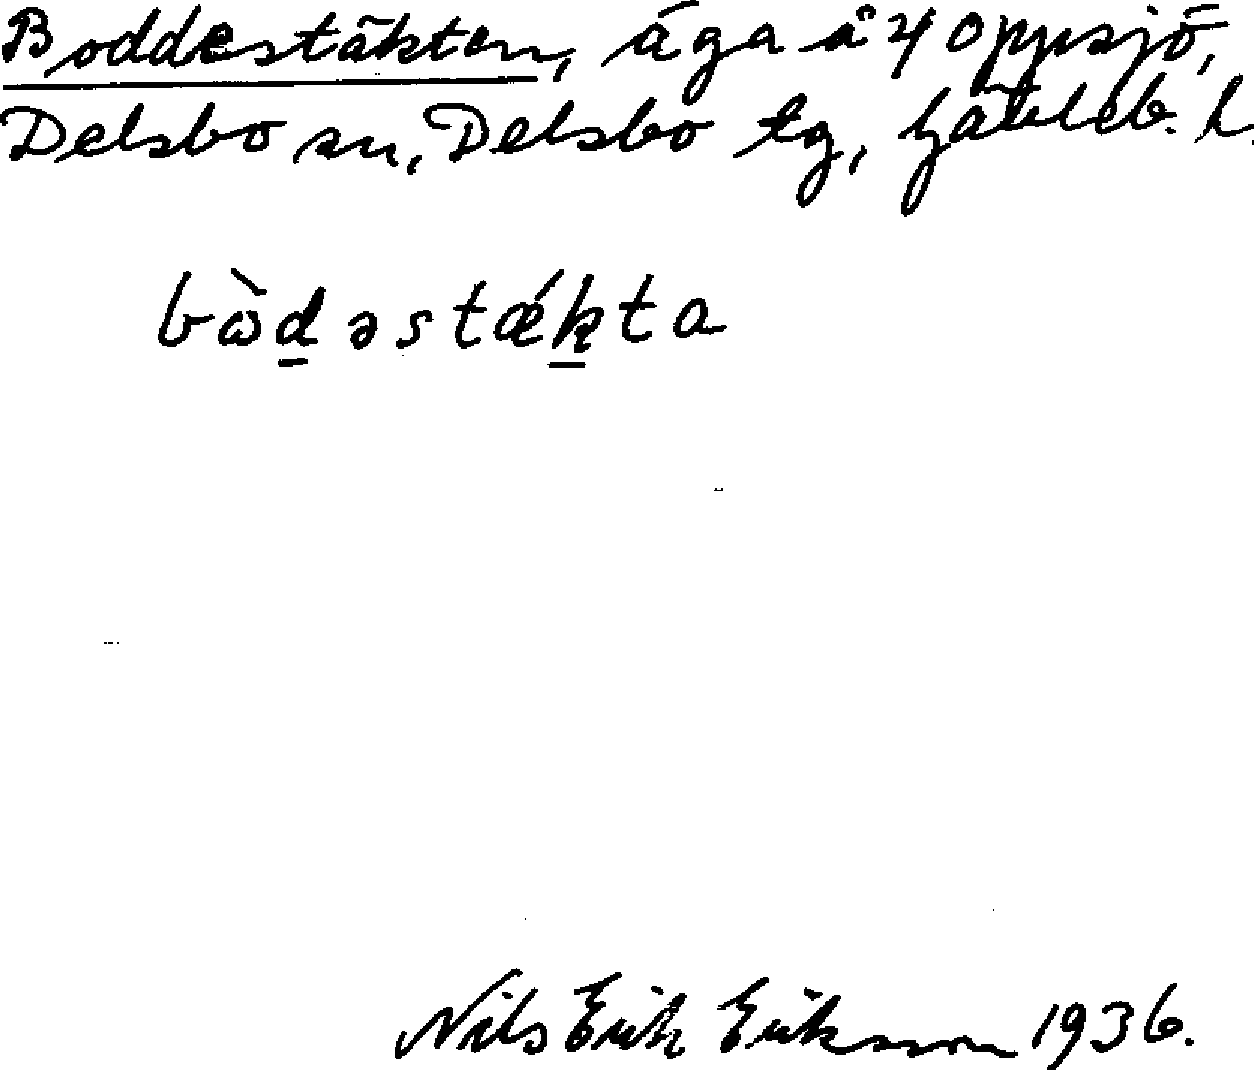 Boddestäkten, äga å 4 Oppsjö,
Delsbo sn, Delsbo tg, Gävleb. l.
bὼd̲əstǽk̲ta
Nils Erik Eriksson 1936.